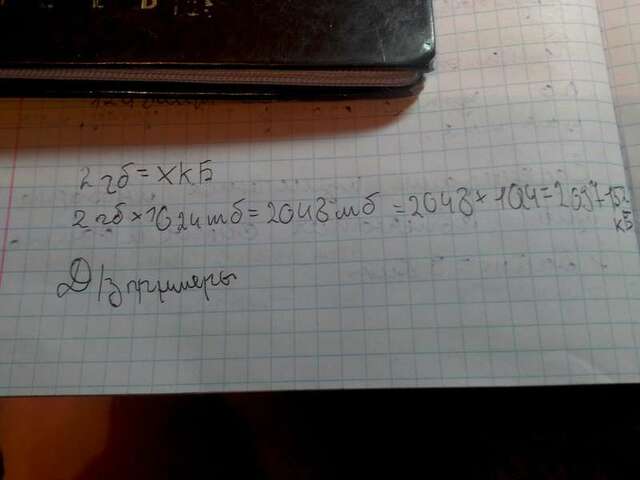 2 гб = X КБ
2 гб × 1024 мб = 2048 мб = 2048 × 1024 = 2097152 КБ
Д/з примеры